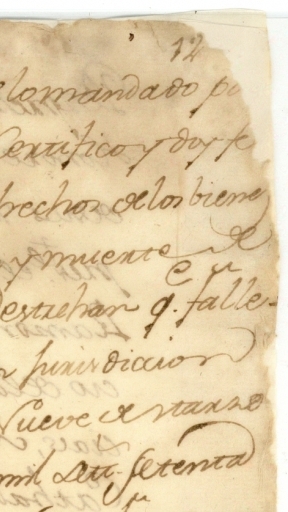 12
lo mandado po
Certifico y doy fe
hechos de los biene
y muerte de
estrehan q.e falle-
n Jurisdiccion
Nueve de Marzo
mil sett. setenta